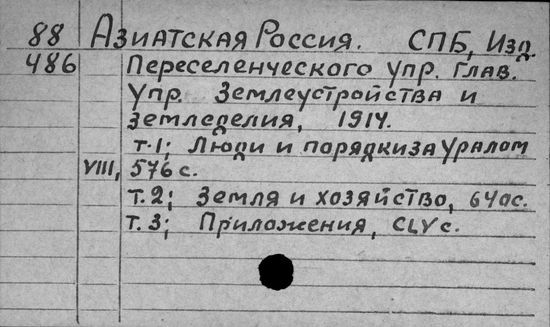 88 Азиатская Россия. СПБ, Изд.
486 Переселенческого упр. Глав.
Упр. Землеустройства и
земледелия, 1914.
т.1; Люди и порядки за Уралом
VIII, 576 с.
т.2; Земля и хозяйство, 640с.
т.3; Приложения, CLV с.